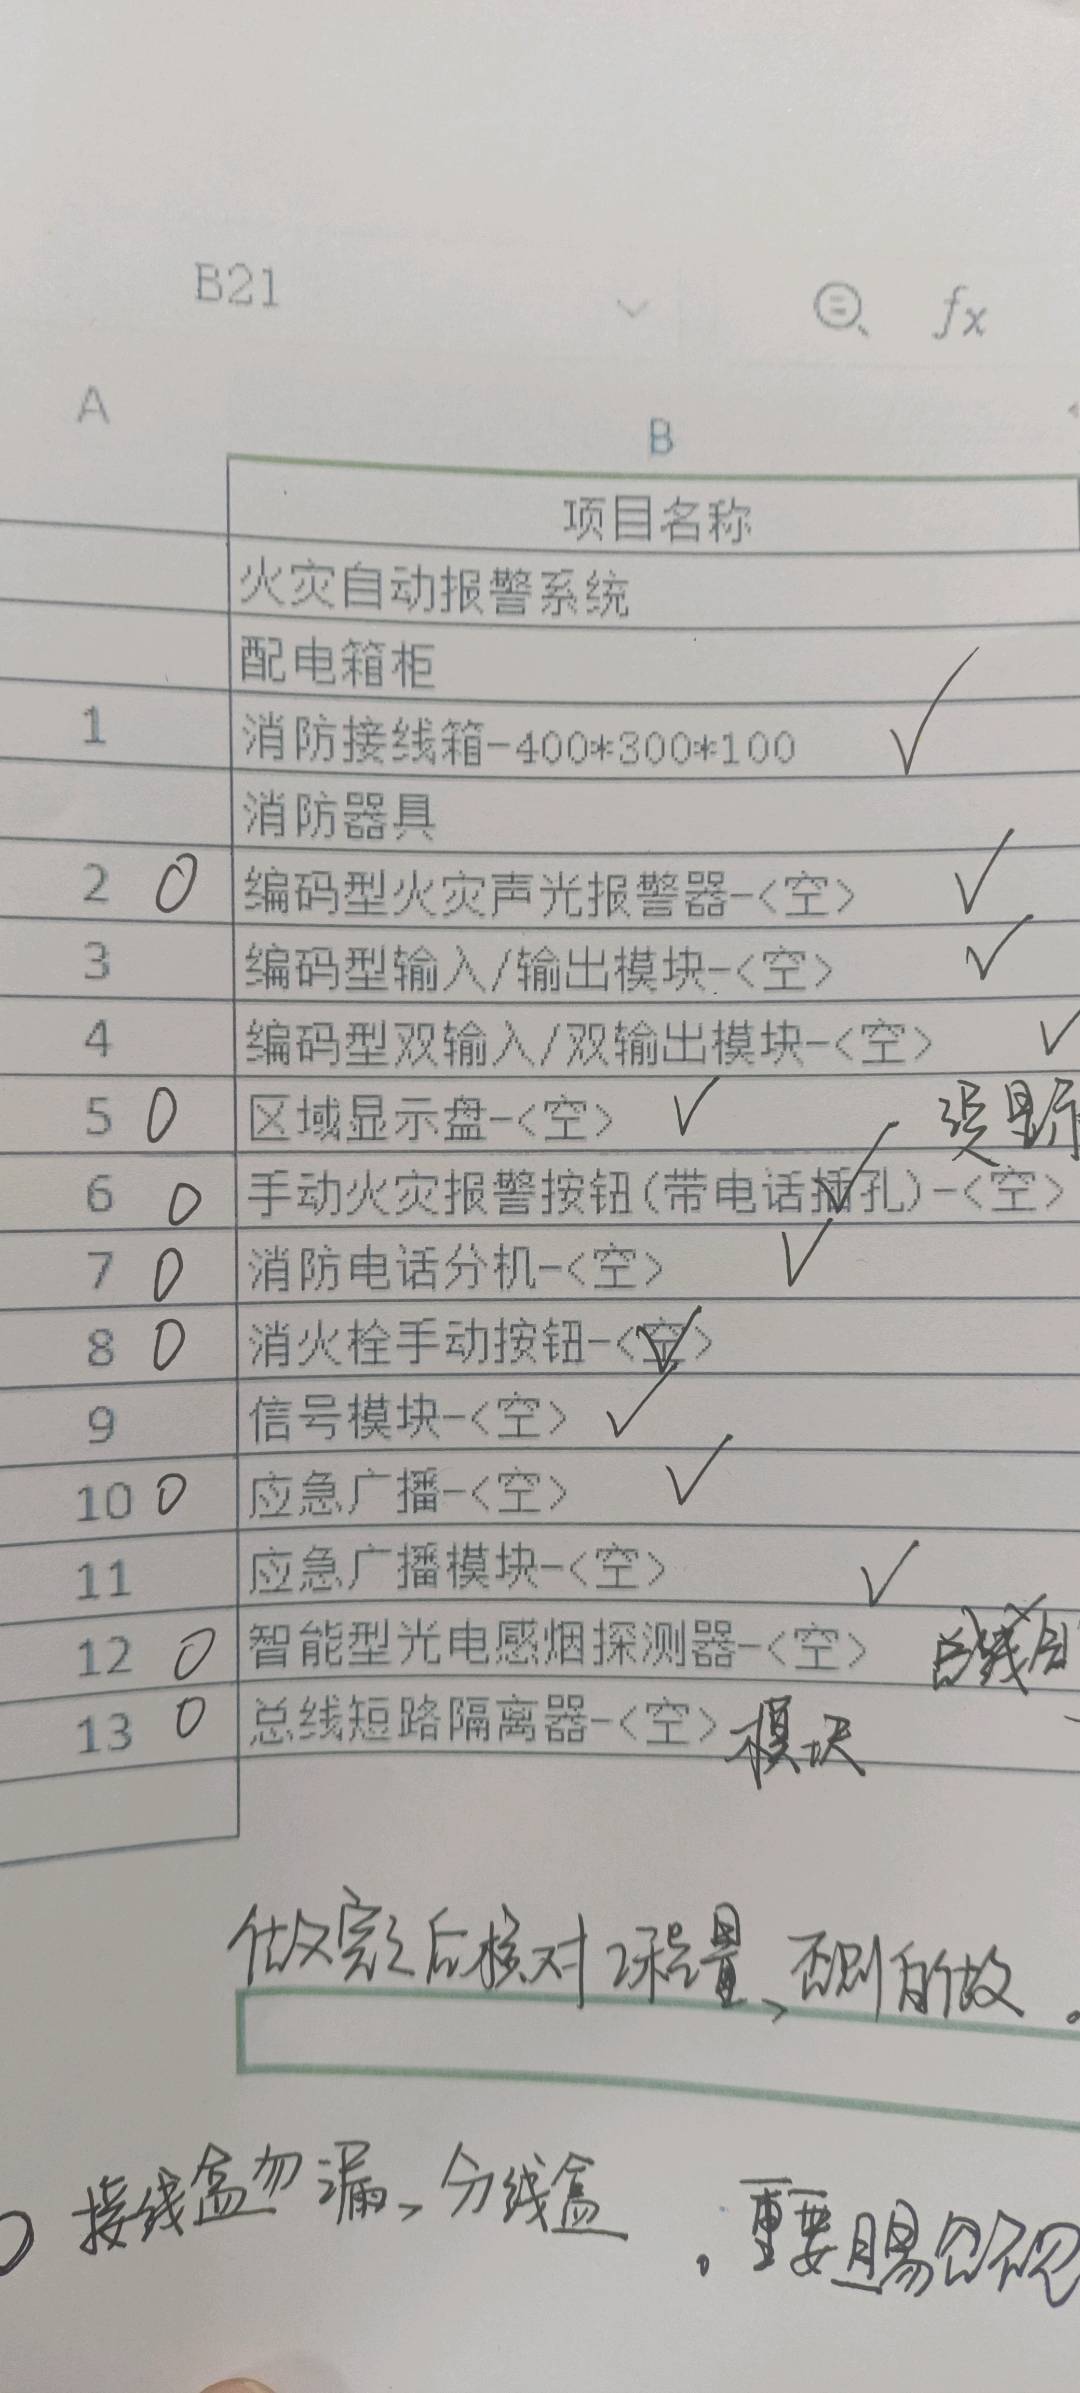 B21
fx
A B
项目名称
火灾自动报警系统
配电箱柜
1 消防接线箱-400*300*100 ✓
消防器具
2 0 编码型火灾声光报警器-<空> ✓
3 编码型输入/输出模块-<空> ✓
4 编码型双输入/双输出模块-<空> ✓
5 0 区域显示盘-<空> ✓ 显示
6 0 手动火灾报警按钮(带电话插孔)-<空> ✓
7 0 消防电话分机-<空> ✓
8 0 消火栓手动按钮-<空> ✓
9 信号模块-<空> ✓
10 0 应急广播-<空> ✓
11 应急广播模块-<空> ✓
12 0 智能型光电感烟探测器-<空> 线
13 0 总线短路隔离器-<空> 模块
做完之后核对工程量、否则白做
接线盒勿漏、分线盒
。重要易忽视